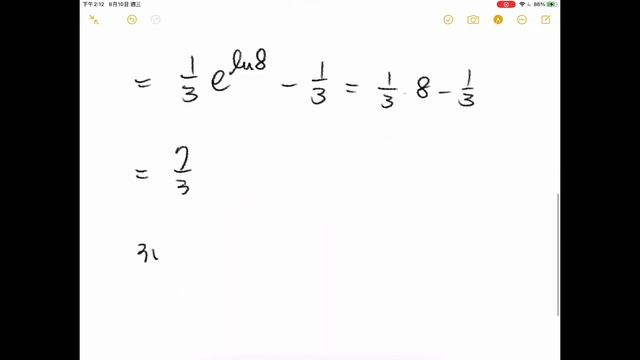 下午2:12 8月10日 週三 86%
= 1/3 e^ln8 - 1/3 = 1/3 · 8 - 1/3
= 7/3